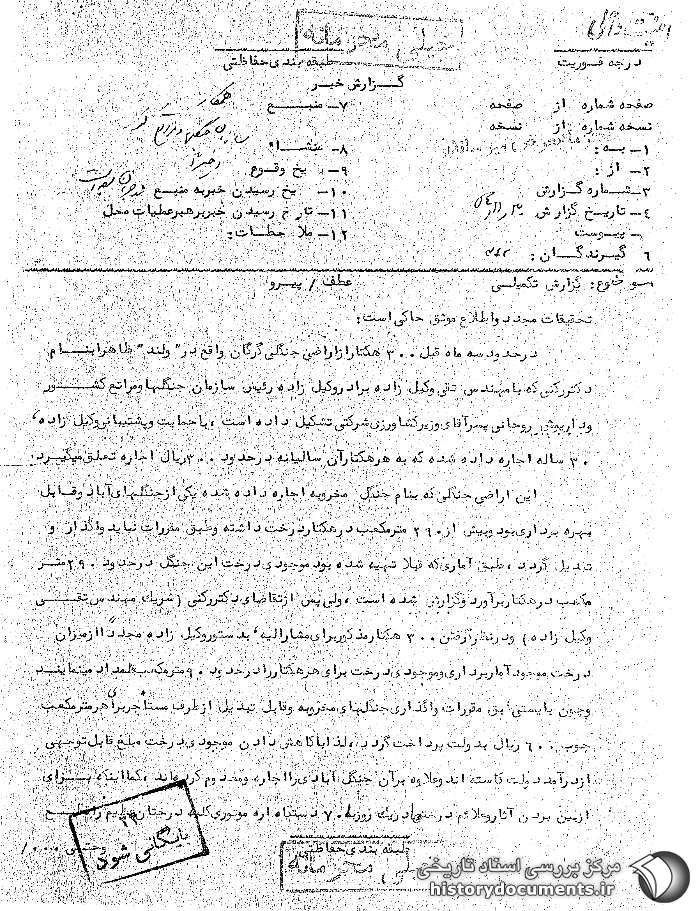 خیلی محرمانه
طبقه بندی حفاظتی
درجه فوریت
گزارش خبر
صفحه شماره از صفحه
نسخه شماره از نسخه
۱- به :
۲- از :
۳- شماره گزارش
۴- تاریخ گزارش
پیوست
۶ گیرندگان :
۷- منبع
۸- منشاء
۹- یخ وقوع
۱۰- یخ رسیدن خبر به منبع
۱۱- تاریخ رسیدن خبر برهبر عملیات محل
۱۲- ملاحظات :
موضوع : گزارش تکمیلی
عطف / پیرو
تحقیقات مجدد و اطلاع موثق حاکی است :
در حدود سه ماه قبل ۳۰۰ هکتار از اراضی جنگلی گرگان واقع در "ولند" ظاهرا بنام
دکتر رکنی که با مهندس تقی وکیل زاده برادر وکیل زاده رئیس سازمان جنگلها و مراتع کشور
و داریوش روحانی پسر آقای وزیر کشاورزی شرکتی تشکیل داده است ، با حمایت و پشتیبانی وکیل زاده ،
۳۰ ساله اجاره داده شده که به هر هکتار آن سالیانه در حدود ۳۰۰ ریال اجاره تعلق میگیرد .
این اراضی جنگلی که بنام جنگل مخروبه اجاره داده شده یکی از جنگلهای آباد و قابل
بهره برداری بود و بیش از ۲۹۰ مترمکعب در هکتار درخت داشته و طبق مقررات نباید واگذار و
تبدیل گردد ، طبق آماری که قبلا تهیه شده بود موجودی درخت این جنگل در حدود ۲۹۰ متر
مکعب در هکتار برآورد و گزارش شده است ، ولی پس از تقاضای دکتر رکنی (شریک مهندس تقی
وکیل زاده) و در نظر گرفتن ۳۰۰ هکتار مذکور برای مشارالیه بدستور وکیل زاده مجدداً از میزان
درخت موجود آمار برداری و موجودی درخت برای هر هکتار را در حدود ۹۰ مترمکعب قلمداد مینمایند
و چون بایستی طبق مقررات واگذاری جنگلهای مخروبه و قابل تبدیل از طرف مستأجر برای هر مترمکعب
چوب ۶۰۰ ریال بدولت پرداخت گردد ، لذا با کاهش دادن موجودی درخت مبلغ قابل توجهی
از درآمد دولت کاسته اند و علاوه بر آن جنگل آبادی را اجاره و معدوم کرده اند ، کما اینکه برای
از بین بردن آثار و علائم درختی در یک روز با ۷۰ دستگاه اره موتوری کلیه درختان
بایگانی شود
طبقه بندی حفاظتی
خیلی محرمانه
مرکز بررسی اسناد تاریخی
historydocuments.ir